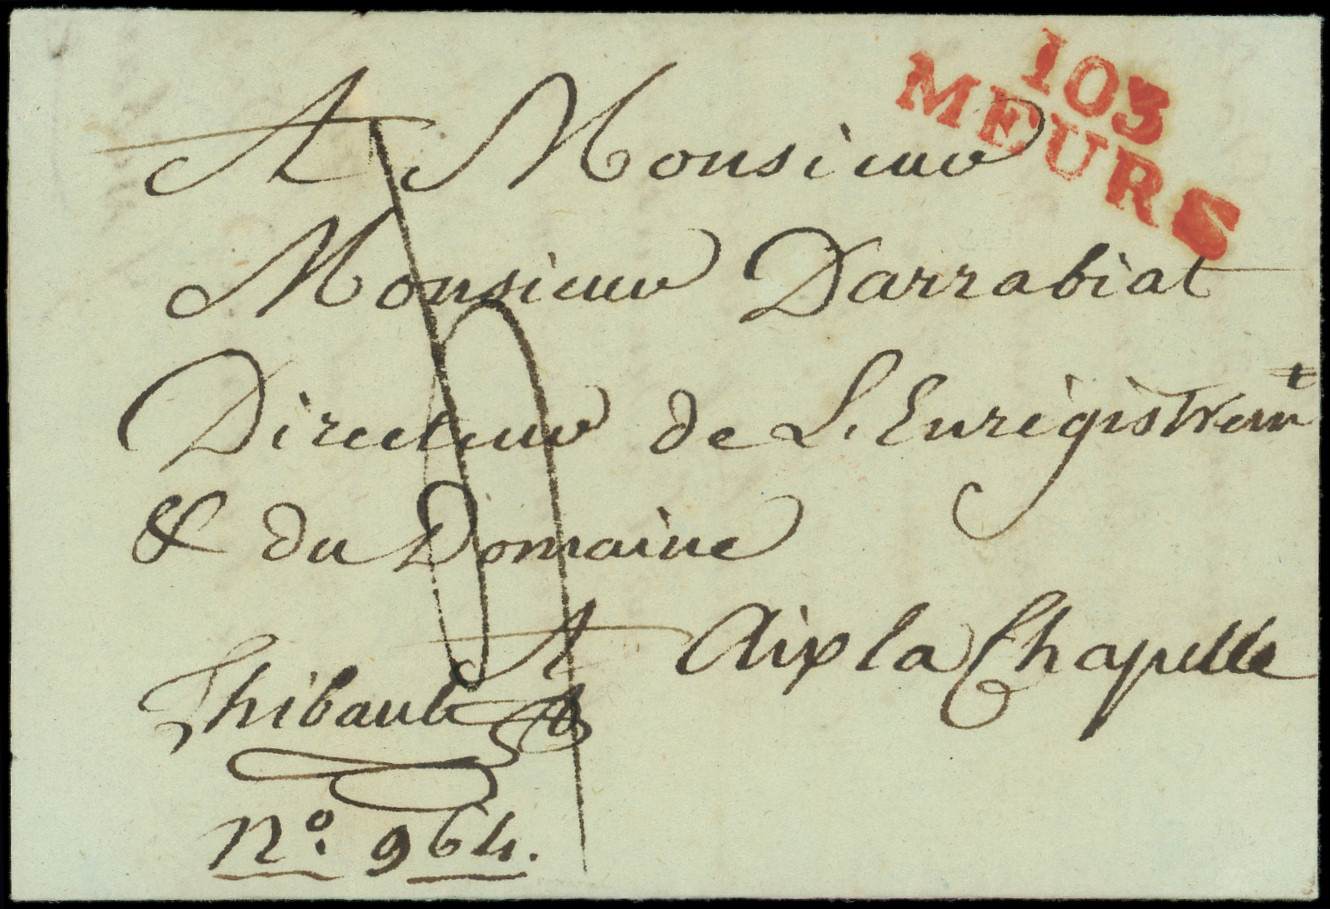 103
MEURS
A Monsieur
Monsieur Darrabiat
Directeur de L'Enrégistremt
& du Domaine
A Aix la Chapelle
Thibault
No. 964.